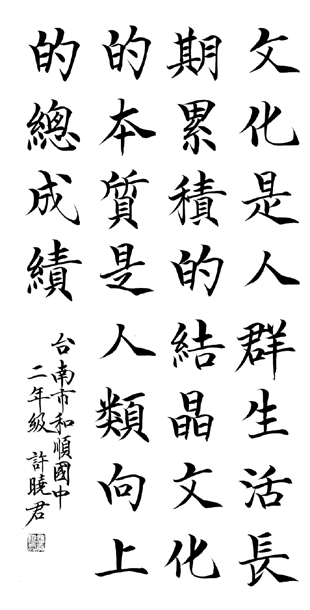 文化是人群生活長
期累積的結晶文化
的本質是人類向上
的總成績
台南市和順國中
二年級 許曉君